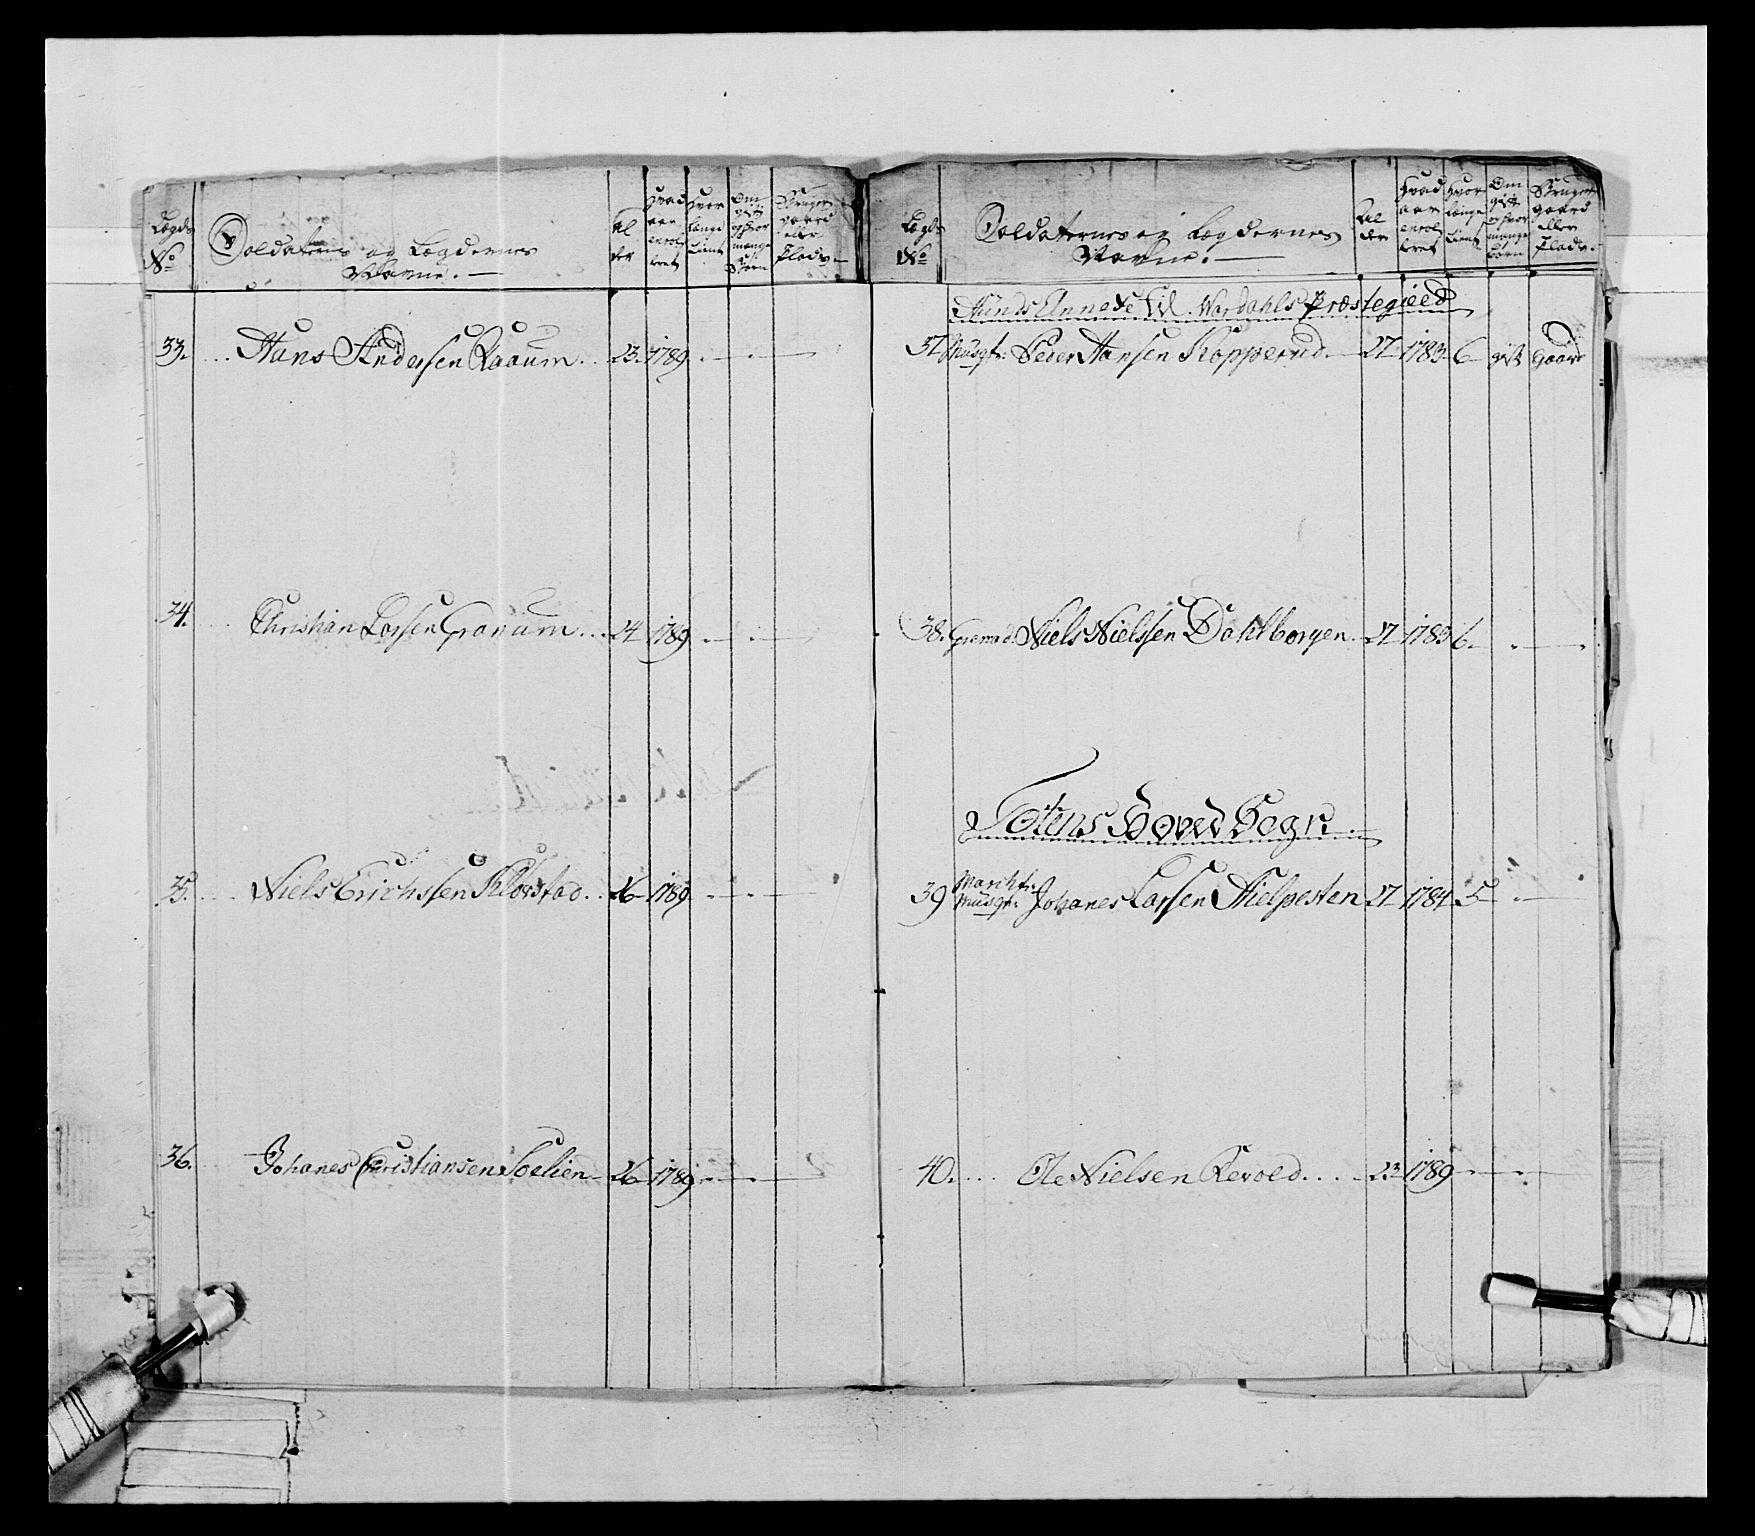 Lægds No
Soldaternes og Lægdernes Navne.
Al der
Hvad aar enrol leret
Hvor længe tient
Om gift og hvor mange Børn
Bruger gaard eller Plads
33. Hans Andersen Raaum 23. 1789
34. Christian Larsen Granum 24 1789
35. Niels Erichssen Klevstad 26 1789
36. Johanes Christiansen Soelien 26 1789
Lægds No
Soldaternes og Lægdernes Navne.
Al der
Hvad aar enrol leret
Hvor længe tient
Om gift og hvor mange børn
Bruger gaard eller Plads
Hunds Annexe til Wardahls Præstegield
37 Musqt: Peder Hansen Kopperud 27 1783 6 gift gaard
38. Grenad. Niels Nielssen Dahlborgen 27 1783 6.
Totens Hoved Sogn
39 Marcht: Musqt: Johanes Larsen Hielpesten 27 1784 5
40. Ole Nielsen Revold 23 1789